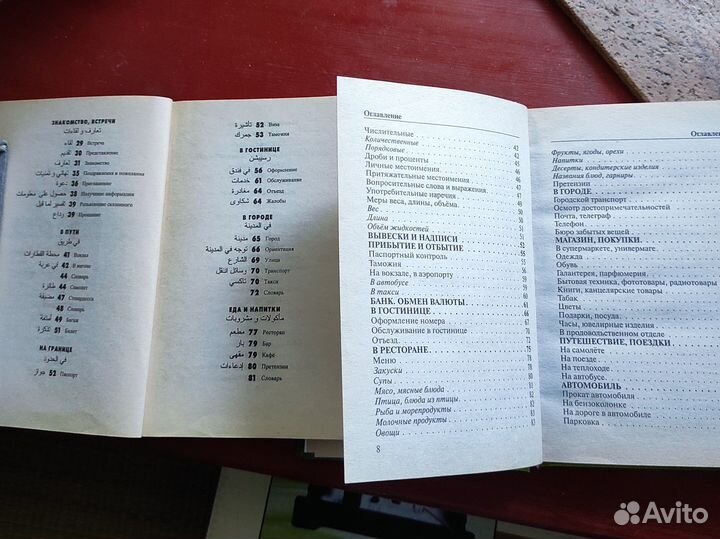 ЗНАКОМСТВО, ВСТРЕЧИ
تعارف و لقاءات
لقاء 29 Встреча
تقديم 30 Представление
تعارف 31 Знакомство
تهاني و تمنيات 35 Поздравления и пожелания
دعوة 36 Приглашение
حصول على معلومات 38 Получение информации
تفسير لما قيل 38 Разъяснение сказанного
وداع 39 Прощание
В ПУТИ
في طريق
محطة القطارات 41 Вокзал
في عربة 42 В вагоне
44 Словарь
طائرة 44 Самолет
مضيفة 47
48 Словарь
أمتعة 49 Багаж
تذكرة 51 Билет
НА ГРАНИЦЕ
في الحدود
جواز 52 Паспорт
تأشيرة 52 Виза
جمرك 53 Таможня
В ГОСТИНИЦЕ
رسيبشن
في فندق 56 Оформление
خدمات 61 Обслуживание
مغادرة 64 Отъезд
شكاوى 64 Жалобы
В ГОРОДЕ
في المدينة
مدينة 65 Город
توجه في المدينة 66 Ориентация
الشارع 69 Улица
وسائل انتقل 70 Транспорт
تاكسي 70 Такси
72 Словарь
ЕДА И НАПИТКИ
مأكولات و مشروبات
مطعم 77 Ресторан
بار 79 Бар
مقهى 79 Кафе
إدعاءات 80 Претензии
81 Словарь
Оглавление
Числительные 42
Количественные
Порядковые 43
Дроби и проценты
Личные местоимения
Притяжательные местоимения 46
Вопросительные слова и выражения
Употребительные наречия
Меры веса, длины, объёма
Вес
Длина
Объём жидкостей
ВЫВЕСКИ И НАДПИСИ
ПРИБЫТИЕ И ОТБЫТИЕ 52
Паспортный контроль 55
Таможня
На вокзале, в аэропорту
В автобусе
В такси
БАНК. ОБМЕН ВАЛЮТЫ 61
В ГОСТИНИЦЕ 66
Оформление номера 67
Обслуживание в гостинице
Отъезд
В РЕСТОРАНЕ 75
Меню
Закуски
Супы
Мясо, мясные блюда
Птица, блюда из птицы
Рыба и морепродукты
Молочные продукты
Овощи
8
Фрукты, ягоды, орехи
Напитки
Десерты, кондитерские изделия
Названия блюд, гарниры
Претензии
В ГОРОДЕ
Городской транспорт
Осмотр достопримечательностей
Почта, телеграф
Телефон
Бюро забытых вещей
МАГАЗИН, ПОКУПКИ
В супермаркете, универмаге
Одежда
Обувь
Галантерея, парфюмерия
Бытовая техника, фототовары, радиотовары
Книги, канцелярские товары
Табак
Цветы
Подарки, посуда
Часы, ювелирные изделия
В продовольственном отделе
ПУТЕШЕСТВИЕ, ПОЕЗДКИ
На самолёте
На поезде
На теплоходе
На автобусе
АВТОМОБИЛЬ
Прокат автомобиля
На бензоколонке
На дороге в автомобиле
Парковка
Avito